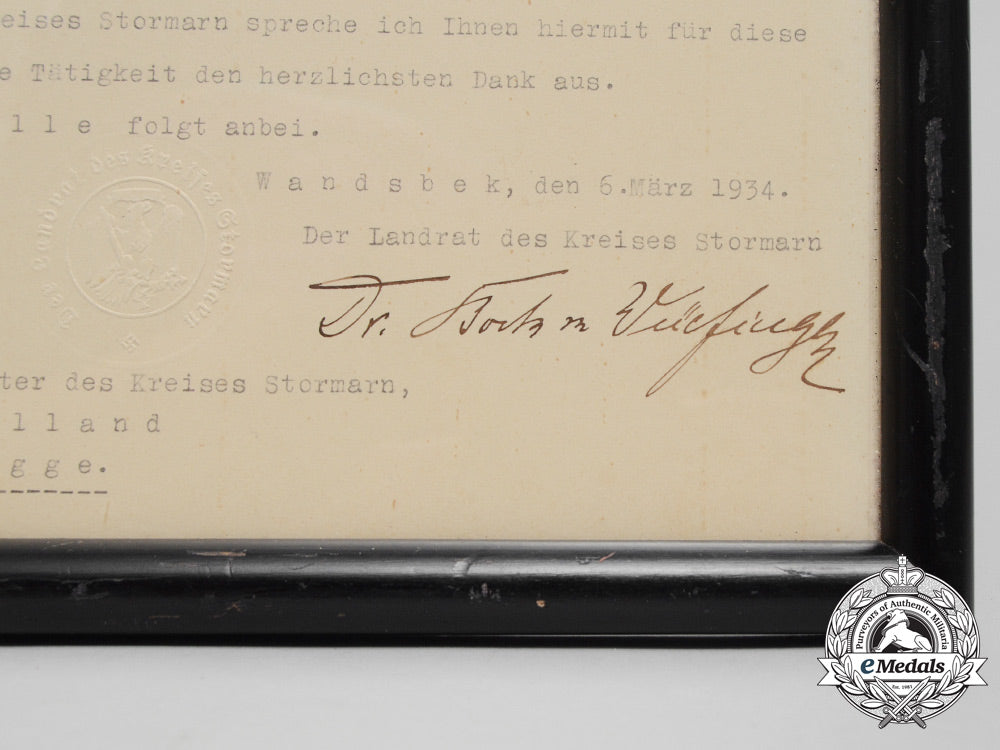 eises Stormarn spreche ich Ihnen hiermit für diese
e Tätigkeit den herzlichsten Dank aus.
l l e folgt anbei.
W a n d s b e k, den 6.März 1934.
Der Landrat des Kreises Stormarn
Der Landrat des Kreises Stormarn
Dr.
ter des Kreises Stormarn,
l l a n d
g g e.
Purveyors of Authentic Militaria
eMedals
Est. 1987